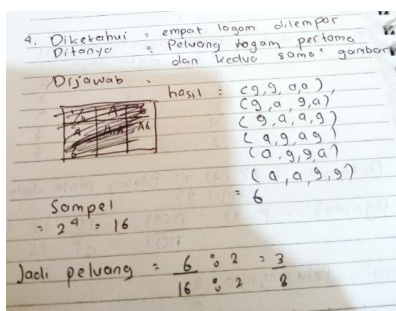 4. Diketahui : empat logam dilempar
Ditanya : Peluang logam pertama
dan kedua sama" gambar
Dijawab :
hasil : (g, g, a, a),
(g, a, g, a)
(g, a, a, g)
(a, g, a, g)
(a, g, g, a)
(a, a, g, g)
= 6
Sampel
= 2⁴ = 16
Jadi peluang = 6/16 : 2/2 = 3/8